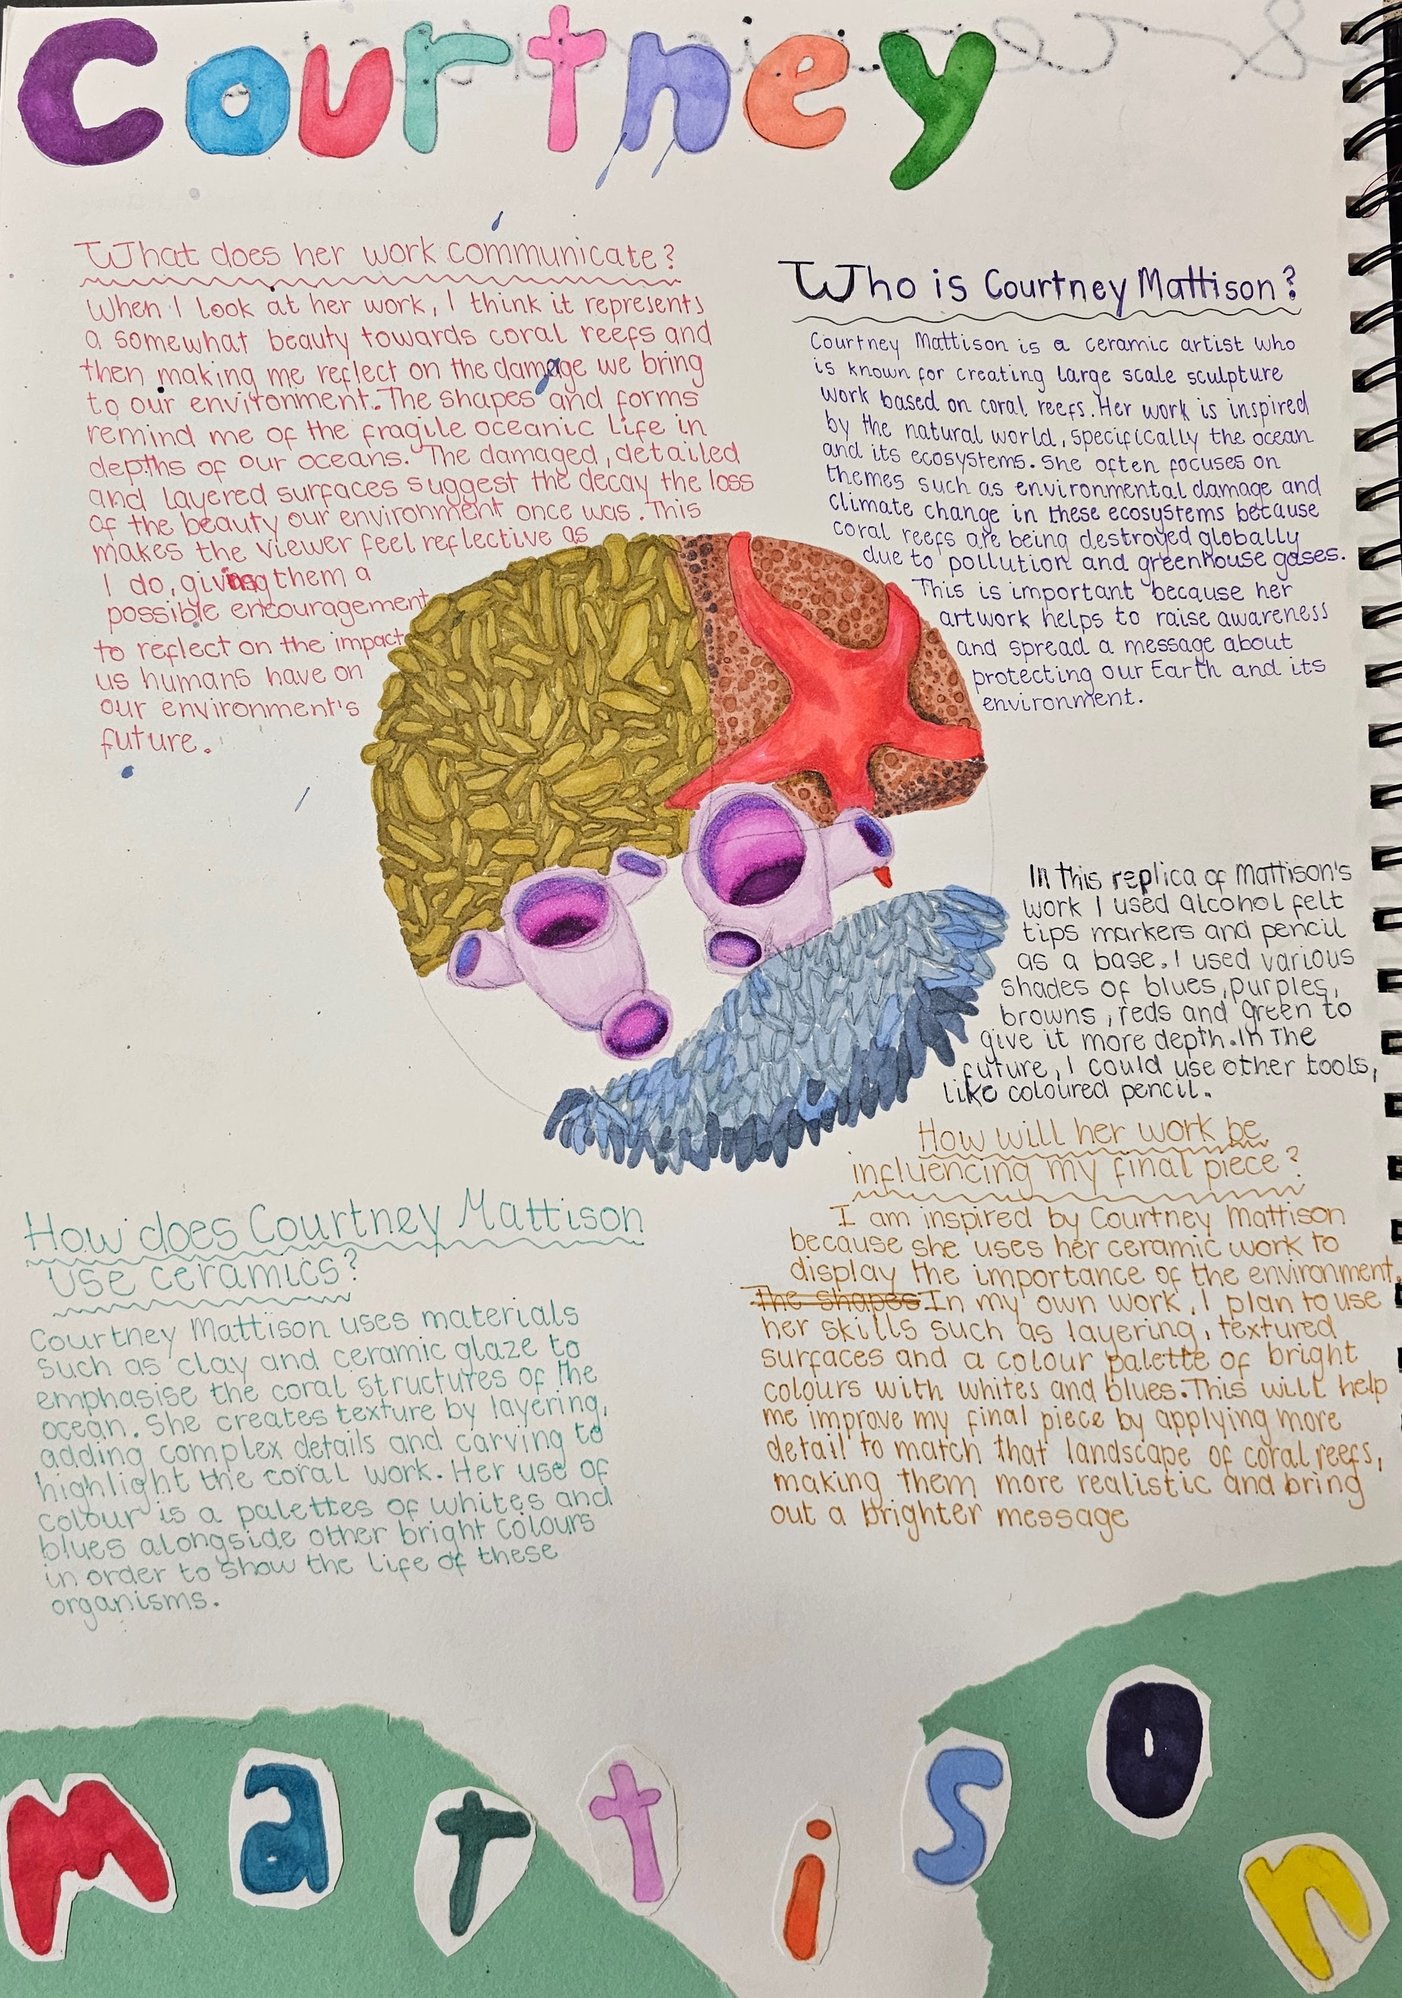 Courtney
What does her work communicate?
When I look at her work, I think it represents
a somewhat beauty towards coral reefs and
then making me reflect on the damage we bring
to our environment. The shapes and forms
remind me of the fragile oceanic life in
depths of our oceans. The damaged, detailed
and layered surfaces suggest the decay the loss
of the beauty our environment once was. This
makes the viewer feel reflective as
I do, giving them a
possible encouragement
to reflect on the impact
us humans have on
our environment's
future.
Who is Courtney Mattison?
Courtney Mattison is a ceramic artist who
is known for creating large scale sculpture
work based on coral reefs. Her work is inspired
by the natural world, specifically the ocean
and its ecosystems. She often focuses on
themes such as environmental damage and
climate change in these ecosystems because
coral reefs are being destroyed globally
due to pollution and greenhouse gases.
This is important because her
artwork helps to raise awareness
and spread a message about
protecting our Earth and its
environment.
In this replica of Mattison's
work I used alcohol felt
tips markers and pencil
as a base. I used various
shades of blues, purples,
browns, reds and green to
give it more depth. In the
future, I could use other tools,
like coloured pencil.
How does Courtney Mattison
use ceramics?
Courtney Mattison uses materials
such as clay and ceramic glaze to
emphasise the coral structures of the
ocean. She creates texture by layering,
adding complex details and carving to
highlight the coral work. Her use of
colour is a palettes of whites and
blues alongside other bright colours
in order to show the life of these
organisms.
How will her work be
influencing my final piece?
I am inspired by Courtney Mattison
because she uses her ceramic work to
display the importance of the environment.
The shapes In my own work, I plan to use
her skills such as layering, textured
surfaces and a colour palette of bright
colours with whites and blues. This will help
me improve my final piece by applying more
detail to match that landscape of coral reefs,
making them more realistic and bring
out a brighter message
mattison